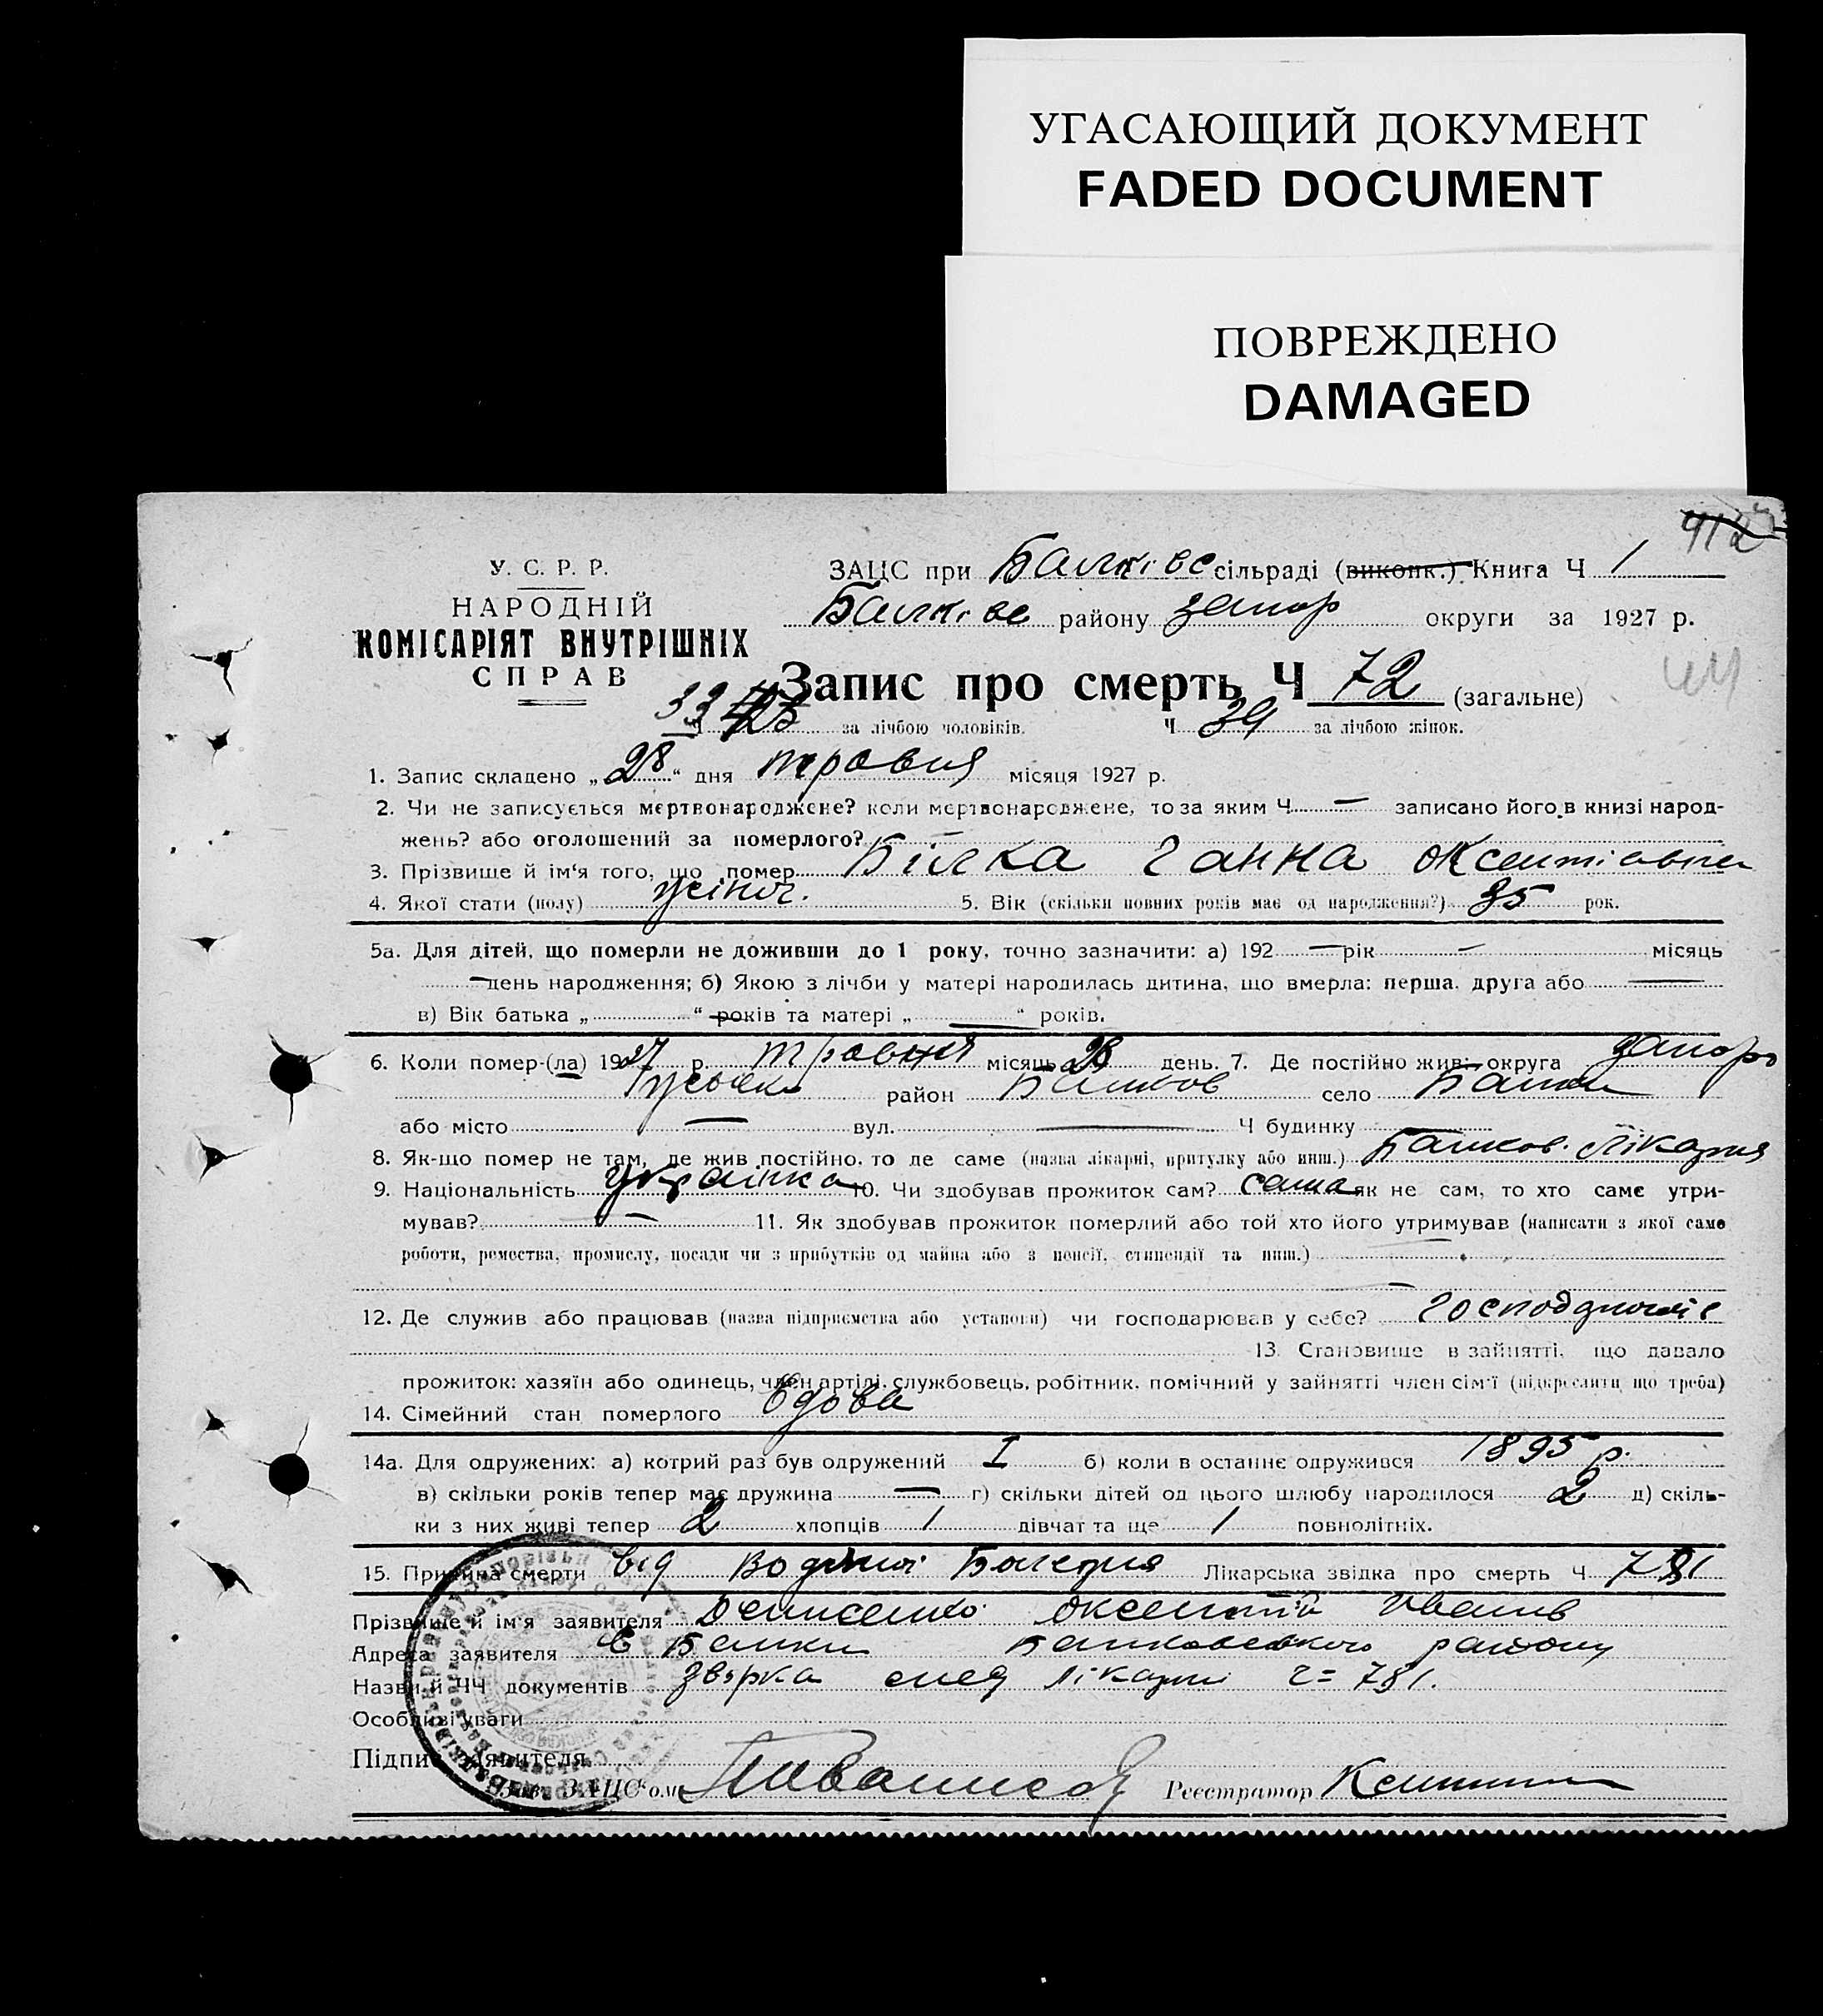 УГАСАЮЩИЙ ДОКУМЕНТ
FADED DOCUMENT
ПОВРЕЖДЕНО
DAMAGED
У. С. Р. Р.
НАРОДНІЙ
КОМІСАРІЯТ ВНУТРІШНІХ
СПРАВ
ЗАЦС при Балківс сільраді (виконк.) Книга Ч 1
Балківс району запор округи за 1927 р.
Запис про смерть Ч 72 (загальне)
Ч 33 за лічбою чоловіків. Ч 39 за лічбою жінок.
1. Запис складено „28“ дня травня місяця 1927 р.
2. Чи не записується мертвонароджене? коли мертвонароджене, то за яким Ч — записано його в книзі народ-
жень? або оголошений за померлого? —
3. Прізвище й ім'я того, що помер Білка Ганна Оксентіавна
4. Якої стати (полу) жіноч. 5. Вік (скільки повних років має од народження?) 85 рок.
5а. Для дітей, що померли не доживши до 1 року, точно зазначити: а) 192 — рік — місяць
— день народження; б) Якою з лічби у матері народилась дитина, що вмерла: перша, друга або —
в) Вік батька „ “ років та матері „ — “ років.
6. Коли помер-(ла) 1927 р. травня місяць 28 день. 7. Де постійно жив: округа запорі
район Балков село Балки
або місто — вул. — Ч будинку
8. Як-що помер не там, де жив постійно, то де саме (назва лікарні, притулку або инш.) Балков. Лікарня
9. Національність Українка 10. Чи здобував прожиток сам? сама як не сам, то хто саме утри-
мував? — 11. Як здобував прожиток померлий або той хто його утримував (написати з якої саме
роботи, ремества, промислу, посади чи з прибутків од майна або з пенсії, стипендії та инш.)
—
12. Де служив або працював (назва підприємства або установи) чи господарював у себе?
13. Становище в зайнятті, що давало
прожиток: хазяїн або одинець, член артілі, службовець, робітник, помічний у зайнятті член сім'ї (підкреслити що треба)
14. Сімейний стан померлого вдова
14а. Для одружених: а) котрий раз був одружений I б) коли в останнє одружився 1895 р.
в) скільки років тепер має дружина — г) скільки дітей од цього шлюбу народилося 2 д) скіль-
ки з них живі тепер 2 хлопців 1 дівчат та ще 1 повнолітніх.
15. Причина смерти від Лікарська звідка про смерть Ч 781
Прізвище й ім'я заявителя Денисенко Оксентій Іванів
Адреса заявителя с Балки Балковского району
Назви й ЧЧ документів лікарні ч= 781.
Особливі уваги
Підпис заявителя
Зав. ЗАЦС'ом Реєстратор